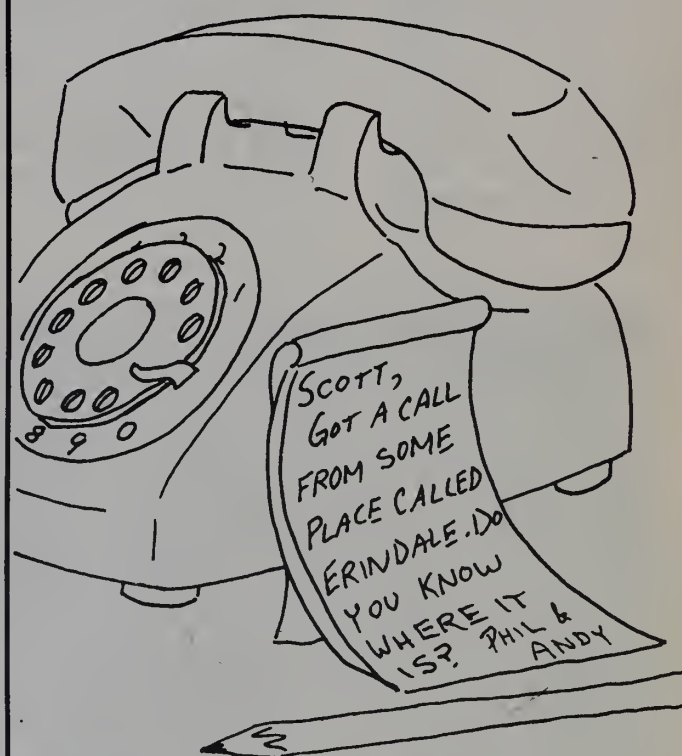 SCOTT,
GOT A CALL
FROM SOME
PLACE CALLED
ERINDALE. DO
YOU KNOW
WHERE IT
IS? PHIL &
ANDY
8 9 0